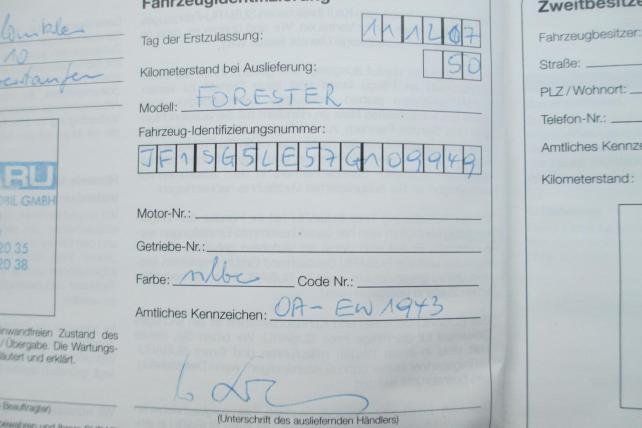 Fahrzeugidentifizierung
Tag der Erstzulassung: 111207
Kilometerstand bei Auslieferung: 50
Modell: FORESTER
Fahrzeug-Identifizierungsnummer:
JF1SG5LE57G109949
Motor-Nr.:
Getriebe-Nr.:
Farbe: Code Nr.:
Amtliches Kennzeichen: OA-EW 1943
(Unterschrift des ausliefernden Händlers)
10
ARU
BIL GMBH
20 35
20 38
einwandfreien Zustand des
/Übergabe. Die Wartungs-
läutert und erklärt.
Beauftragter)
Zweitbesitze
Fahrzeugbesitzer:
Straße:
PLZ/Wohnort:
Telefon-Nr.:
Amtliches Kennze
Kilometerstand: